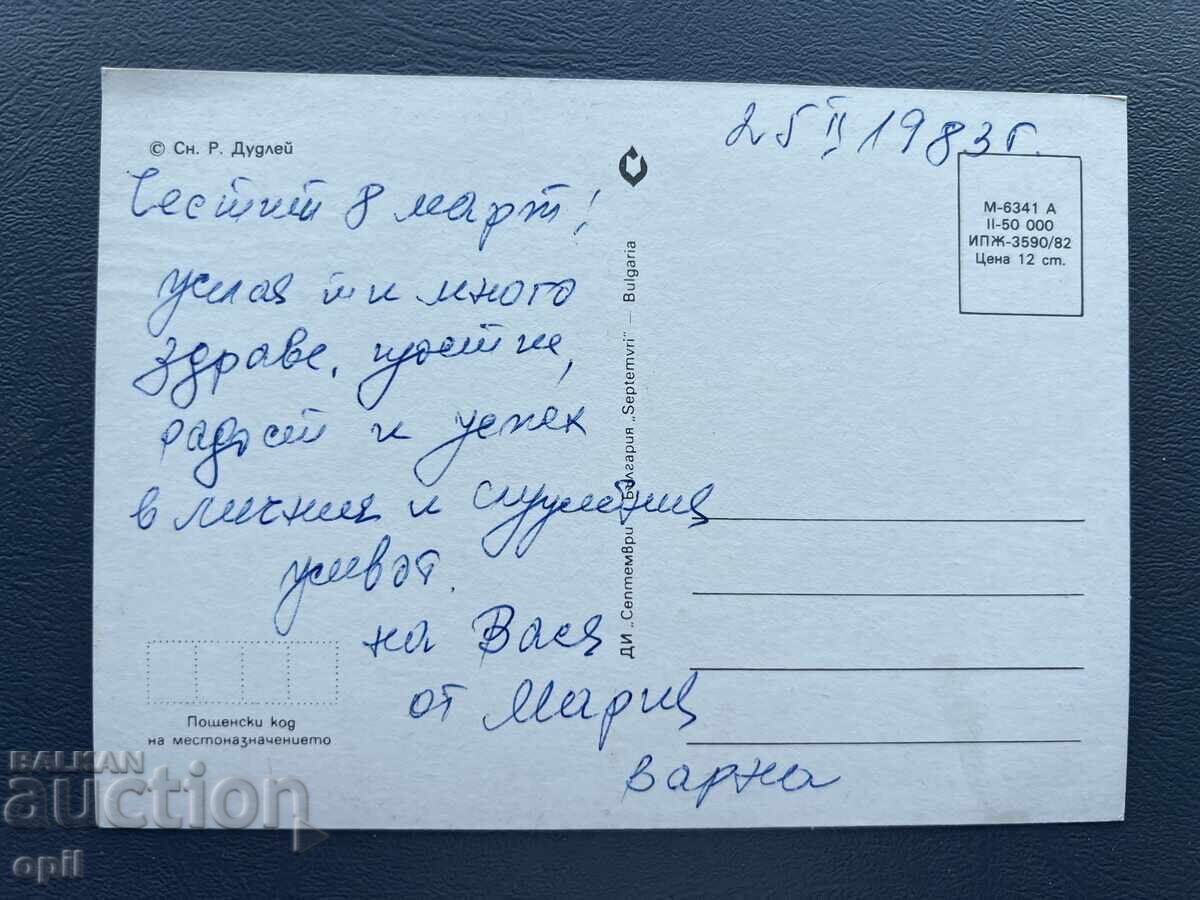 25 II 1983 г.
© Сн. Р. Дудлей
Честит 8 март!
М-6341 А
II-50 000
ИПЖ-3590/82
Цена 12 ст.
ДИ „Септември" България „Septemvri" — Bulgaria
ти много
здраве, щастие,
радост и успех
в личния и служебния
живот.
на Вася
от Мария
Варна
Пощенски код
на местоназначението
BALKAN
auction
opil